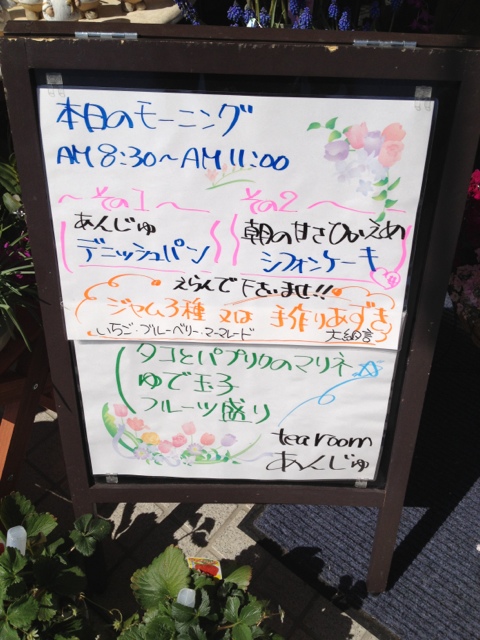 本日のモーニング
AM 8:30～AM 11:00
～その1～ その2～
あんじゅ
デニッシュパン
朝の甘さひかえめ
シフォンケーキ
えらんで下さいませ!!
ジャム3種 又は 手作りあずき
いちご・ブルーベリー・ママレード 大納言
タコとパプリカのマリネ
ゆで玉子
フルーツ盛り
tea room
あんじゅ